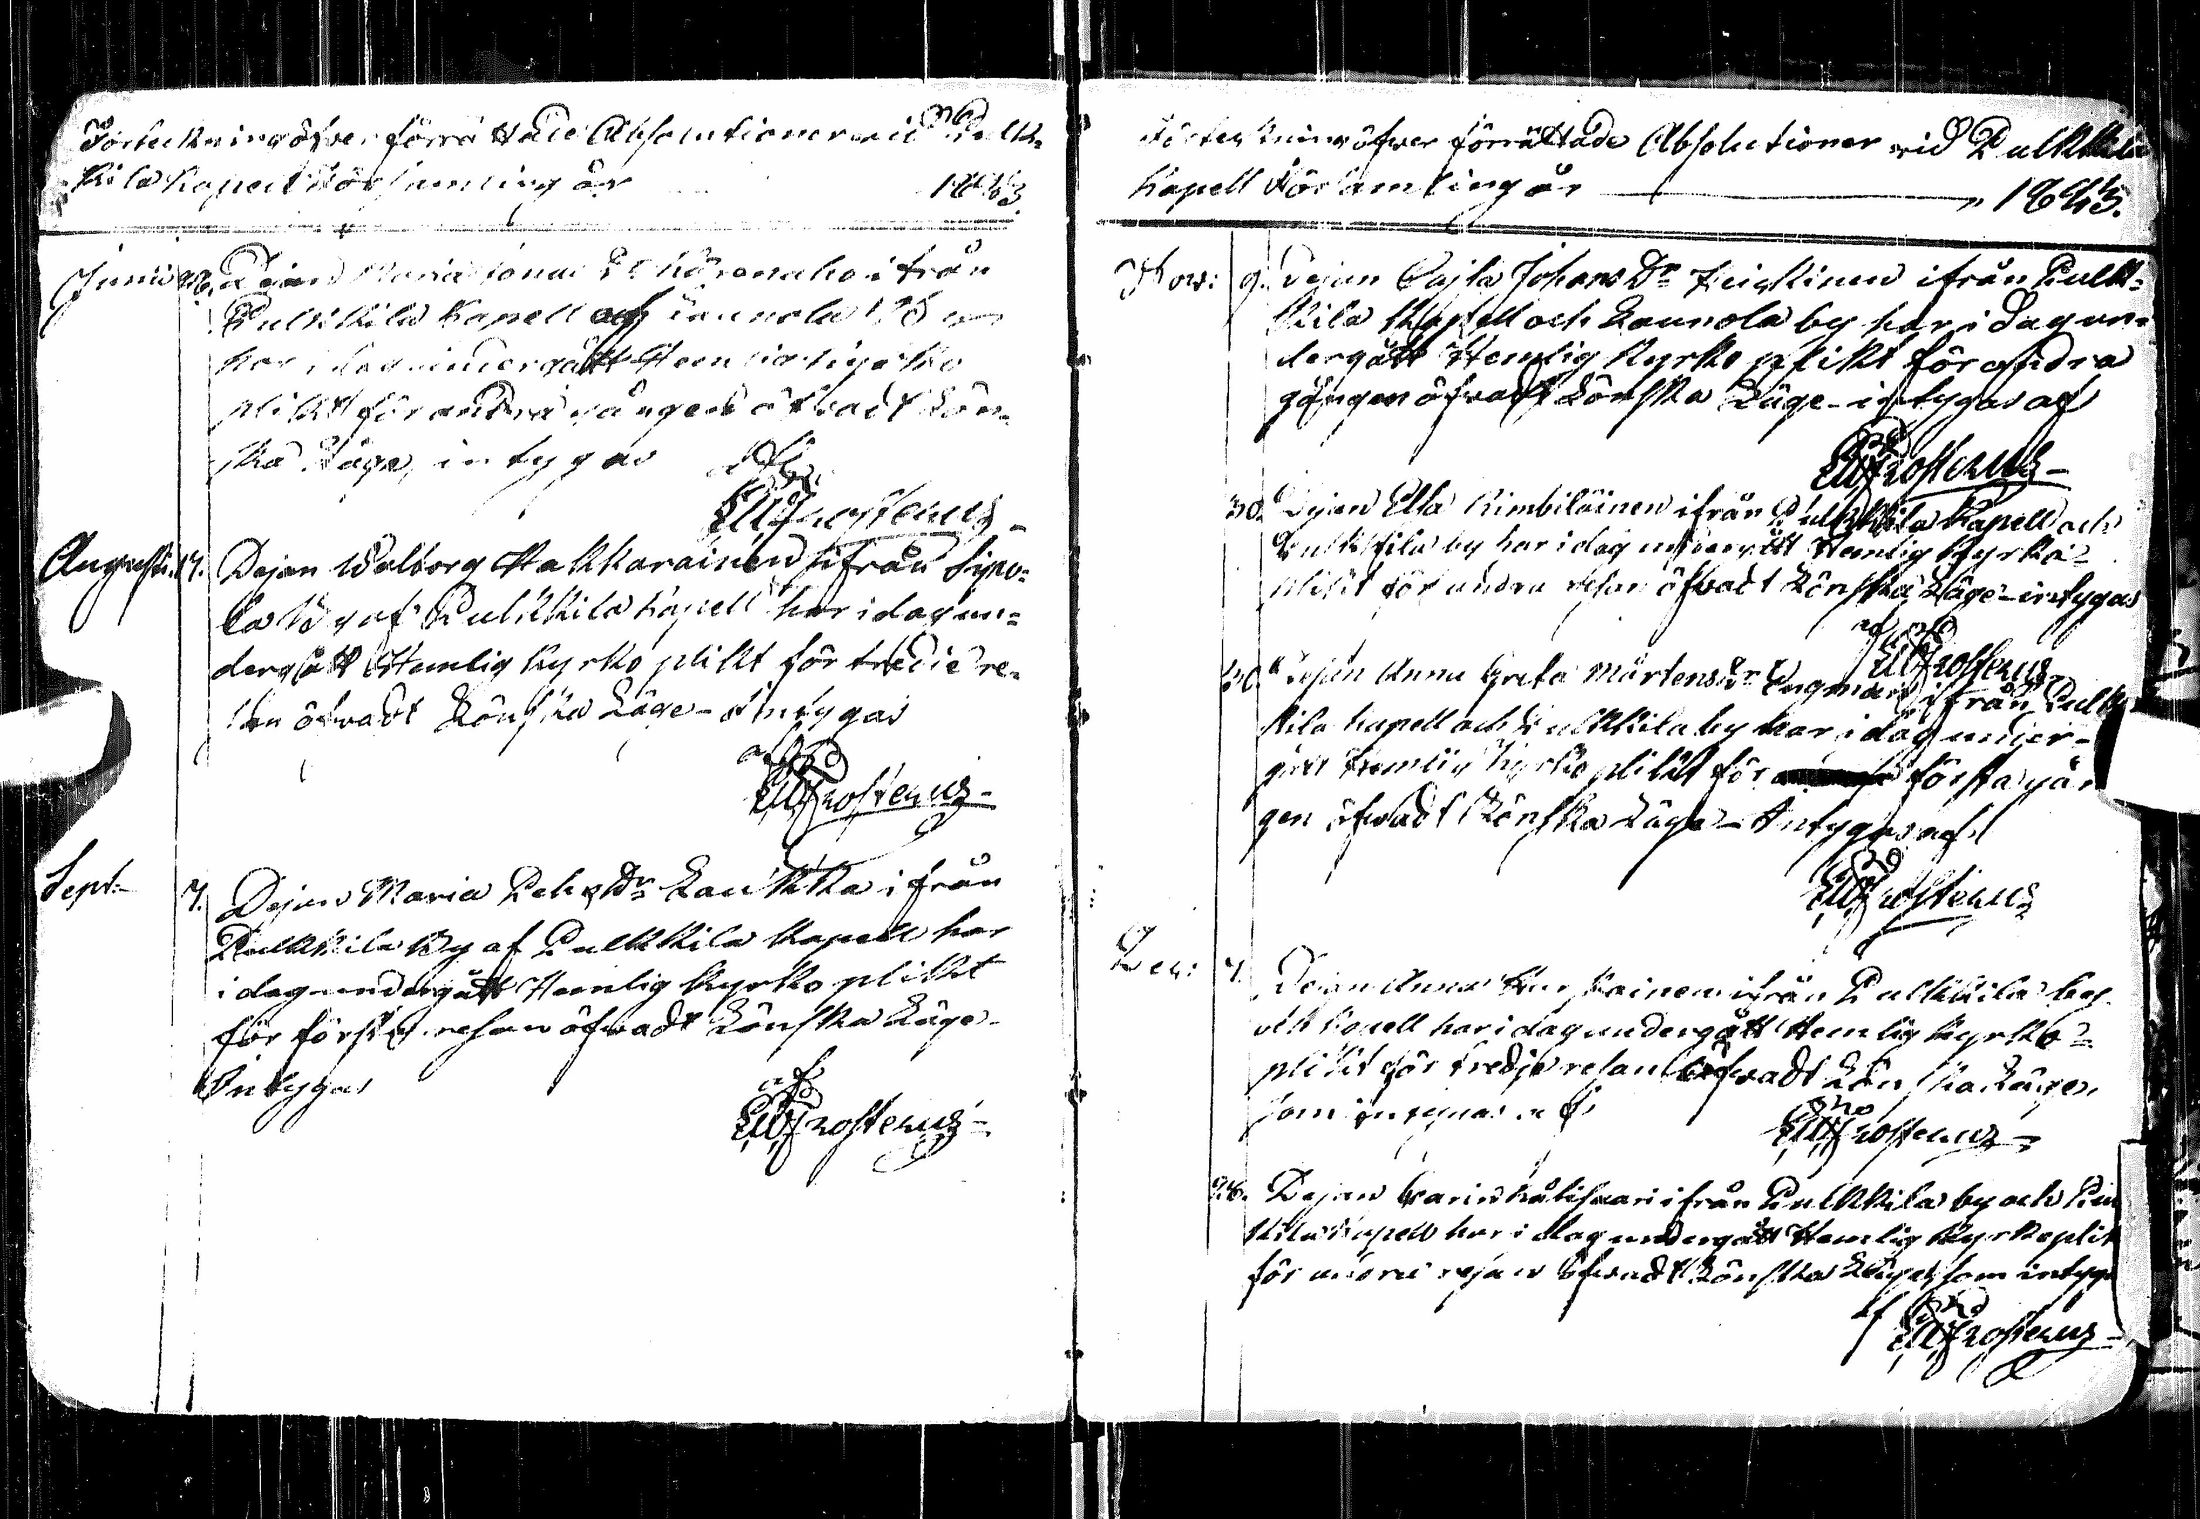 Förteckning öfver förrättade Absolutioner vid Pulk-
kila Kapell Församling år 1843.
Junii Pigan Maria Jonae Dr ifrån
Pulkkila Kapell och Laurola By
har i dag undergått Hemlig Kyrko
plikt för andra gången öfvadt Lön-
ska Läge, intygas
af
Frosterus
Augusti 17. Pejan Walborg Hakkarainen ifrån Sipo-
la By af Pulkkila Kapell har i dag un-
dergått Hemlig Kyrko plikt för tredie re-
san öfvadt Lönska Läge – Intygas
af
Frosterus
Sept: 7. Pejan Maria Pehrs Dr Laukka ifrån
Pulkkila By af Pulkkila Kapell har
i dag undergått Hemlig Kyrko plikt
för första resan öfvadt Lönska Läge
Intygas
af
Frosterus
Förteckning öfver förrättade Absolutioner vid Pulkkila
Kapell Församling år 1843.
Nov: 9. Pejan Cajsa Johans Dr Heickinen ifrån Pulk-
kila Kapell och Laurola by har i dag un-
dergått Hemlig Kyrko plikt för andra
gången öfvadt Lönska Läge – intygas af
Frosterus
30. Pejan Elsa Kimbiläinen ifrån Pulkkila Kapell och
Pulkkila by har i dag undergått Hemlig Kyrko-
plikt för andra resan öfvadt Lönska Läge – intygas
af
Frosterus
30. Pejan Anna Greta Mårtens Dr ifrån Pulk
kila Kapell och Pulkkila by har i dag under-
gått Hemlig Kyrko plikt för första gån
gen öfvadt Lönska Läge – Intygas af
Frosterus
Dec: 7. Pejan Anna ifrån Pulkkila by
och Kapell har i dag undergått Hemlig Kyrko-
plikt för tredje resan öfvadt Lönska Läge,
som intygas af
Frosterus
Pejan Carin ifrån Pulkkila by och Pul
kila Kapell har i dag undergått Hemlig Kyrkoplik
för andra resan öfvadt Lönska Läge, som intyga
af
Frosterus